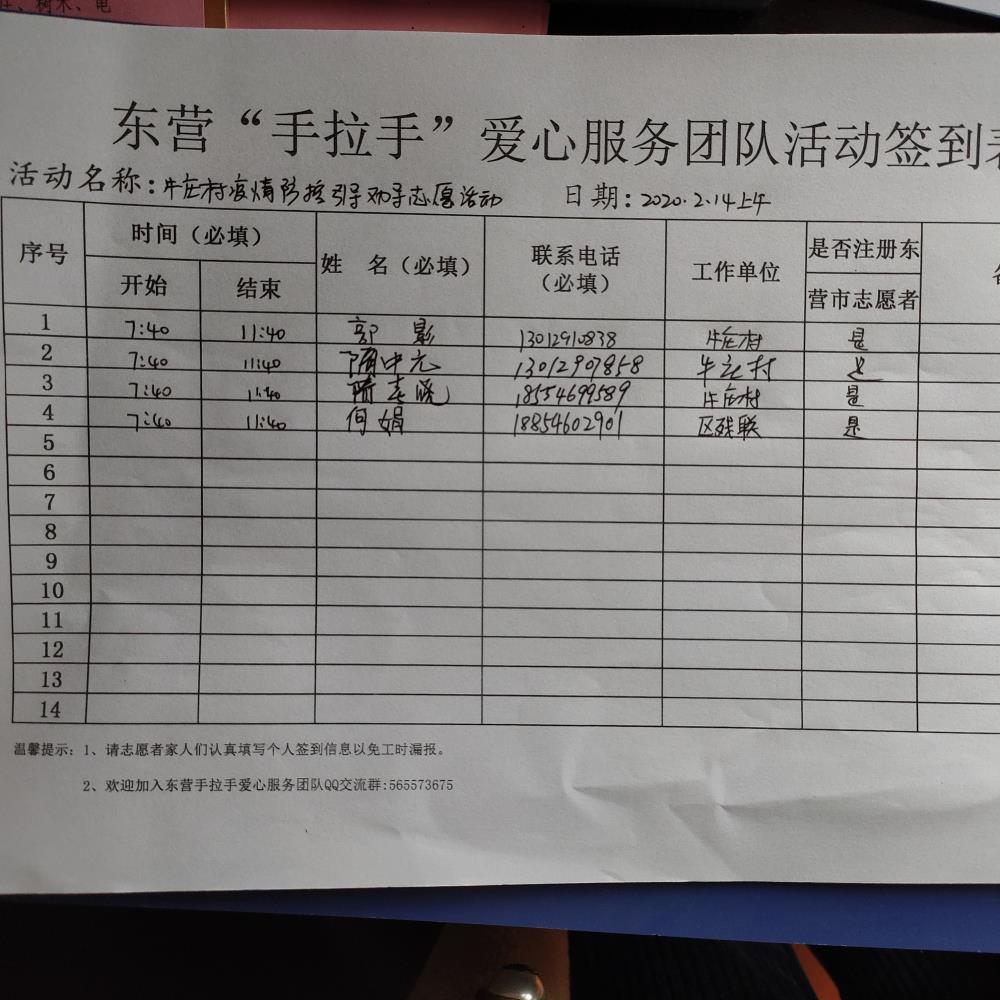 树木、电
东营“手拉手”爱心服务团队活动签到表
活动名称：牛庄村疫情防控引导劝导志愿活动 日期：2020.2.14上午
序号 时间（必填） 姓 名（必填） 联系电话（必填） 工作单位 是否注册东营市志愿者
开始 结束
1 7:40 11:40 郭影 13012910838 牛庄村 是
2 7:40 11:40 隋中元 13012907858 牛庄村 是
3 7:40 11:40 隋志晓 18554699589 牛庄村 是
4 7:40 11:40 何娟 18854602901 区残联 是
5
6
7
8
9
10
11
12
13
14
温馨提示：1、请志愿者家人们认真填写个人签到信息以免工时漏报。
2、欢迎加入东营手拉手爱心服务团队QQ交流群:565573675